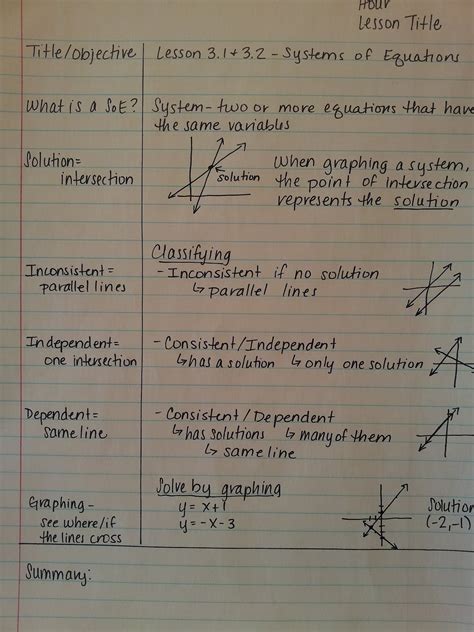 Hour
Lesson Title
Title/Objective
Lesson 3.1 + 3.2 - Systems of Equations
What is a SoE?
System - two or more equations that have
the same variables
Solution=
intersection
solution
When graphing a system,
the point of intersection
represents the solution
Classifying
Inconsistent =
parallel lines
- Inconsistent if no solution
↳ parallel lines
Independent=
one intersection
- Consistent/Independent
↳ has a solution ↳ only one solution
Dependent=
same line
- Consistent / Dependent
↳ has solutions ↳ many of them
↳ same line
Solve by graphing
Graphing -
see where/if
the lines cross
y = x+1
y = -x-3
Solution
(-2,-1)
Summary: